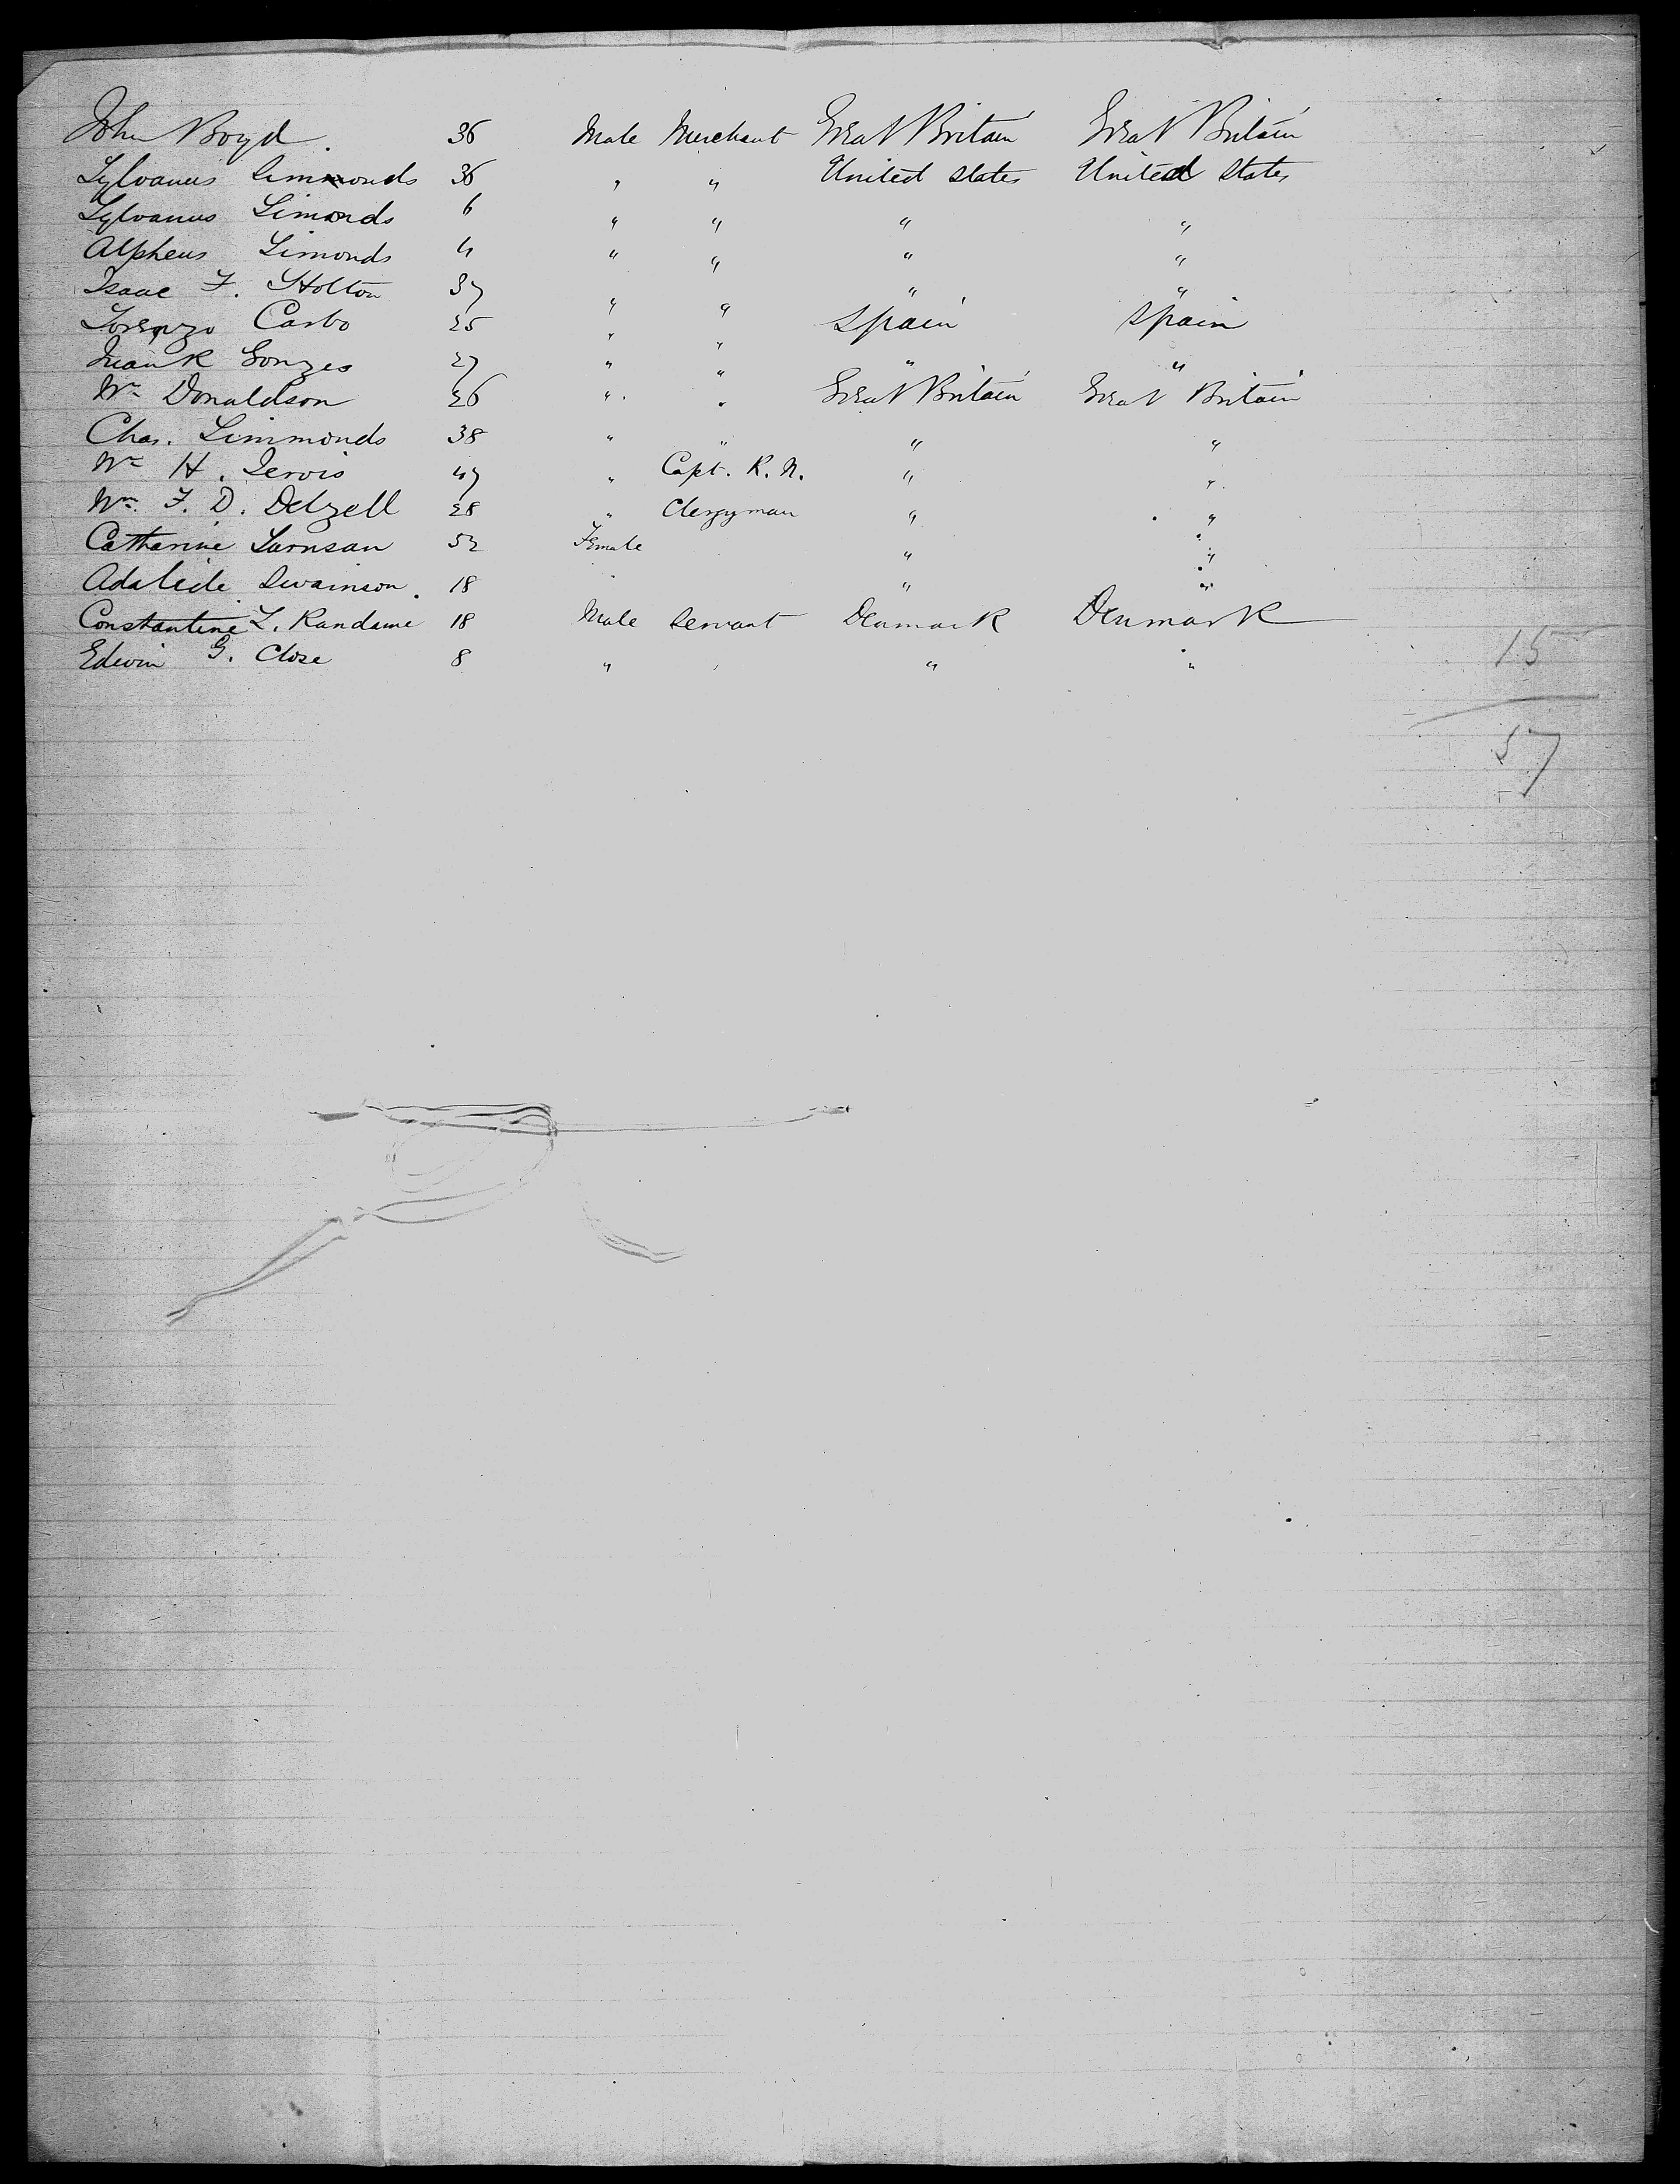 John Boyd. 36 Male Merchant Great Britain Great Britain
Sylvanus Simmonds 36 " " United States United States
Sylvanus Simonds 6 " " " "
Alpheus Simonds 4 " " " "
Isaac F. Holton 37 " " " "
Lorenzo Carbo 25 " " Spain Spain
Juan R Gonzes 27 " " " "
Wm Donaldson 26 " " Great Britain Great Britain
Chas. Simmonds 38 " " " "
Wm H. Jervis 47 " Capt. R. N. " "
Wm. F. D. Delzell 28 " Clergyman " "
Catharine 52 Female " "
Adaleide Swainson. 18 " "
Constantine L. Randame 18 Male Servant Denmark Denmark
Edwin G. Close 8 " " " "
15
57